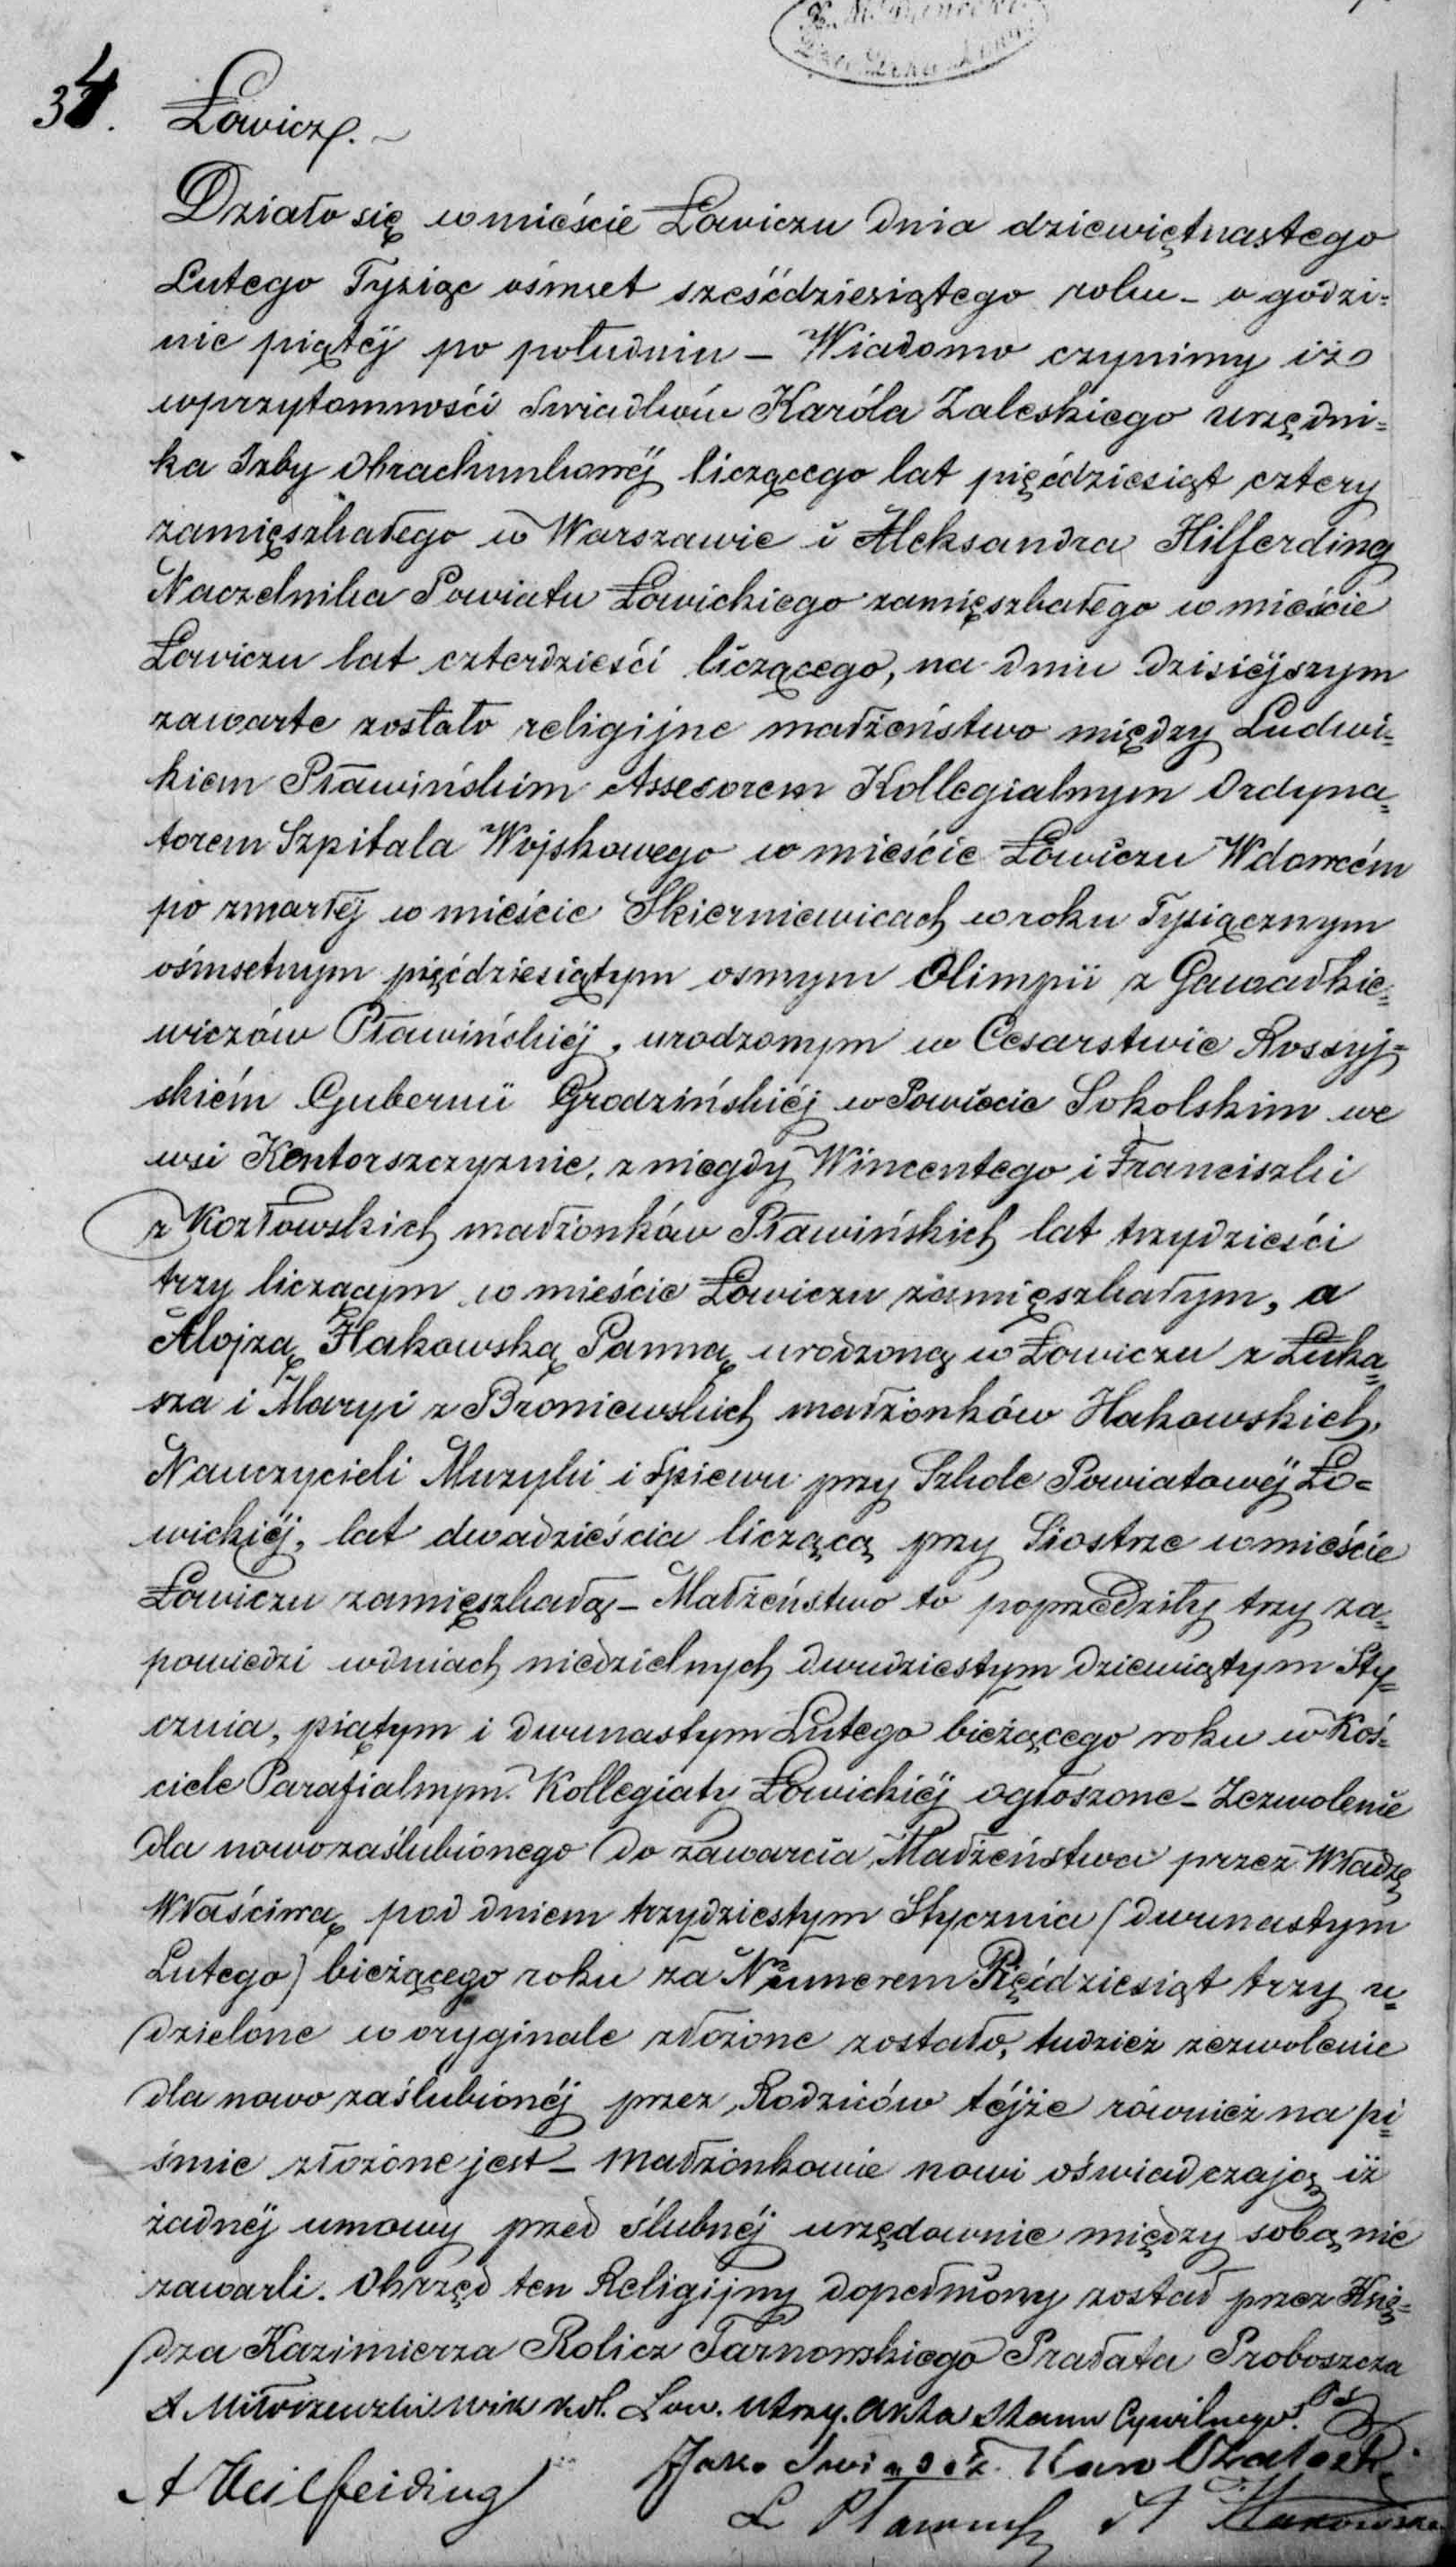 34.
Łowicz.
Działo się w mieście Łowiczu dnia dziewiętnastego
Lutego Tysiąc ośmset sześćdziesiątego roku - o godzi=
nie piątéj po południu - Wiadomo czynimy iż
w przytomności Świadków Karóla Zaleskiego urzędni=
ka Izby Obrachunkowéj liczącego lat pięćdziesiąt cztery
zamięszkałego w Warszawie i Aleksandra Hilferding
Naczelnika Powiatu Łowickiego zamięszkałego w mieście
Łowiczu lat czterdzieści liczącego, na dniu dzisiéjszym
zawarte zostało religijne małżeństwo między Ludwi=
kiem Pławińskim Assesorem Kollegialnym Ordyna=
torem Szpitala Wojskowego w mieście Łowiczu Wdowcém
po zmarłéj w mieście Skierniewicach w roku Tysiącznym
ośmsetnym pięćdziesiątym osmym Olimpii z Gawadkie=
wiczów Pławińskiéj, urodzonym w Cesarstwie Rossyj=
skiém Gubernii Grodzińskiéj w Powiecie Sokolskim we
wsi Kontorszczyznie, z niegdy Wincentego i Franciszki
z Kozłowskich małżonków Pławińskich lat trzydzieści
trzy liczącym w mieście Łowiczu zamięszkałym, a
Alojzą Hakowską Panną urodzoną w Łowiczu z Łuka=
sza i Maryi z Broniewskich małżonków Hakowskich,
Nauczycieli Muzyki i Śpiewu przy Szkole Powiatowéj Ło=
wickiéj, lat dwadzieścia liczącą przy Siostrze w mieście
Łowiczu zamięszkałą - Małżeństwo to poprzedziły trzy za=
powiedzi w dniach niedzielnych dwudziestym dziewiątym Sty=
cznia, piątym i dwunastym Lutego bieżącego roku w Koś=
ciele Parafialnym Kollegiaty Łowickiéj ogłoszone - Zezwolenie
dla nowozaślubionego do zawarcia Małżeństwa przez Władzę
Właściwą pod dniem trzydziestym Stycznia (dwunastym
Lutego) bieżącego roku za Numerem Pięćdziesiąt trzy u=
dzielone w oryginale złożone zostało, tudzież zezwolenie
dla nowo zaślubionéj przez Rodziców téjże również na pi=
śmie złożone jest - Małżonkowie nowi oświadczają iż
żadnéj umowy przed ślubnéj urzędownie między sobą nie
zawarli. Obrzęd ten Religijny dopełniony został przez Xię=
dza Kazimierza Rolicz Tarnowskiego Prałata Proboszcza
Kol. Łow. Utrzy. Akta Stanu Cywilnego.
Jako Świadek Karol Zaleski
A Heilfeiding
L Pławiński A Hakowska